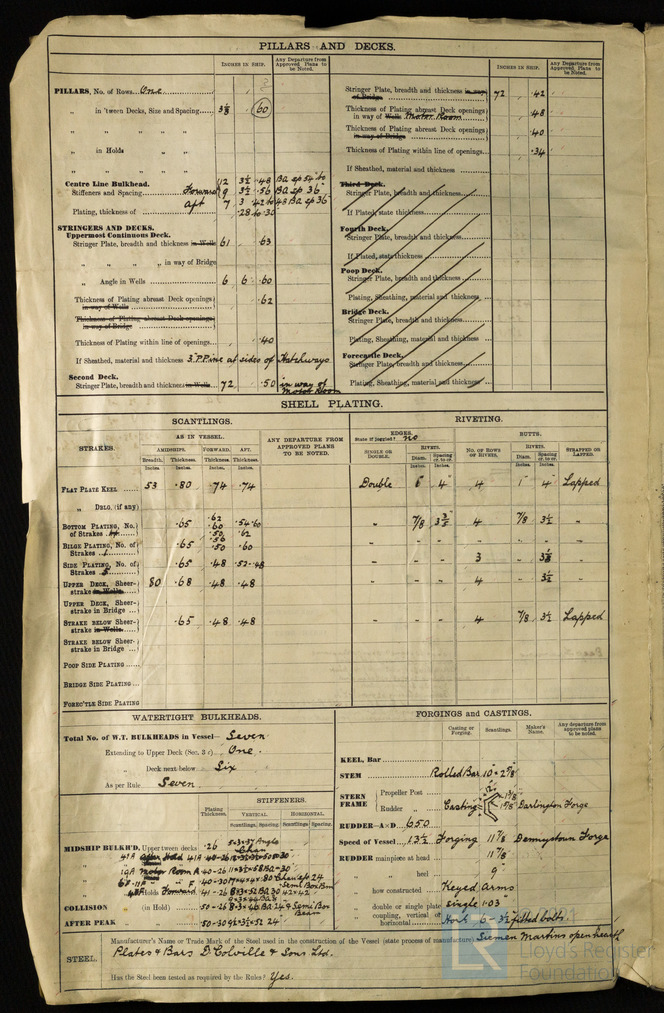 PILLARS AND DECKS.
INCHES IN SHIP.
Any Departure from Approved Plans to be Noted.
PILLARS, No. of Rows One
„ in 'tween Decks, Size and Spacing 3⅜ 60
„ „ „ „
„ in Holds „ „
„ „ „ „
Centre Line Bulkhead. 12 3½ .48 BA sp 54" to
Stiffeners and Spacing Forward 9 3½ .56 BA sp 36"
aft 7 3 .42 to 43 BA sp 36"
Plating, thickness of .28 to 30
STRINGERS AND DECKS.
Uppermost Continuous Deck.
Stringer Plate, breadth and thickness in Wells 61 .63
„ „ „ „ in way of Bridge
„ Angle in Wells 6 6 .60
Thickness of Plating abreast Deck openings in way of Wells .62
Thickness of Plating abreast Deck openings in way of Bridge
Thickness of Plating within line of openings .40
If Sheathed, material and thickness 3" P Pine at sides of Hatchways
Second Deck.
Stringer Plate, breadth and thickness in Wells 72 .50 in way of Motor Room
INCHES IN SHIP.
Any Departure from Approved Plans to be Noted.
Stringer Plate, breadth and thickness in way of Bridge 72 .42
Thickness of Plating abreast Deck openings in way of Wells Motor Room .48
Thickness of Plating abreast Deck openings in way of Bridge .40
Thickness of Plating within line of openings .34
If Sheathed, material and thickness
Third Deck.
Stringer Plate, breadth and thickness
If Plated, state thickness
Fourth Deck.
Stringer Plate, breadth and thickness
If Plated, state thickness
Poop Deck.
Stringer Plate, breadth and thickness
Plating, Sheathing, material and thickness
Bridge Deck.
Stringer Plate, breadth and thickness
Plating, Sheathing, material and thickness
Forecastle Deck.
Stringer Plate, breadth and thickness
Plating, Sheathing, material and thickness
SHELL PLATING.
SCANTLINGS.
RIVETING.
STRAKES.
AS IN VESSEL.
AMIDSHIPS. FORWARD. AFT.
Breadth. Thickness. Thickness. Thickness.
Inches. Inches. Inches. Inches.
ANY DEPARTURE FROM APPROVED PLANS TO BE NOTED.
EDGES.
State if joggled? no
SINGLE OR DOUBLE.
RIVETS.
Diam. Spacing cr. to cr.
Inches. Inches.
BUTTS.
No. OF ROWS OF RIVETS.
RIVETS.
Diam. Spacing cr. to cr.
Inches. Inches.
STRAPPED OR LAPPED.
FLAT PLATE KEEL 53 .80 .74 .74 Double 4" 4 1" 4" Lapped
„ DBLG. (if any)
BOTTOM PLATING, No. of Strakes .65 .62 .60 .50 .54 .60 .62 „ 7/8 4 7/8 3½ „
BILGE PLATING, No. of Strakes 1 .65 .56 .50 .60 „ „ „ „ „ „ „
SIDE PLATING, No. of Strakes 5 .65 .48 .52 .48 „ „ „ 3 „ „
UPPER DECK, Sheerstrake in Wells 80 .68 .48 .48 „ „ „ 4 „ 3½ „
UPPER DECK, Sheerstrake in Bridge
STRAKE BELOW Sheerstrake in Wells .65 .48 .48 „ „ „ 4 7/8 3½ Lapped
STRAKE BELOW Sheerstrake in Bridge
POOP SIDE PLATING
BRIDGE SIDE PLATING
FOREC'TLE SIDE PLATING
WATERTIGHT BULKHEADS.
Total No. of W.T. BULKHEADS in Vessel— Seven
Extending to Upper Deck (Sec. 3 c) One
„ Deck next below Six
As per Rule Seven
Plating Thickness.
STIFFENERS.
VERTICAL. HORIZONTAL.
Scantlings. Spacing. Scantlings. Spacing.
MIDSHIP BULKH'D, Upper tween decks .26
Holds Forward
COLLISION „ (in Hold)
AFTER PEAK „
FORGINGS AND CASTINGS.
Casting or Forging.
Scantlings.
Maker's Name.
Any departure from approved plans to be noted.
KEEL, Bar
STEM Rolled Bar 10" × 2⅞
STERN FRAME
Propeller Post
Rudder „ Casting Darlington Forge
RUDDER—A×D 650
Speed of Vessel 13½ Forging 11⅞ Dennystown Forge
RUDDER mainpiece at head 11⅞
„ „ heel 9"
„ how constructed Keyed Arms
„ double or single plate single 1.03"
„ coupling, vertical or horizontal Hort 6 - 3½ fitted bolts
STEEL.
Manufacturer's Name or Trade Mark of the Steel used in the construction of the Vessel (state process of manufacture) Siemen Martins open hearth
Plates & Bars D Colville & Sons Ltd.
Has the Steel been tested as required by the Rules? Yes.
LR
Lloyd's Register
Foundation